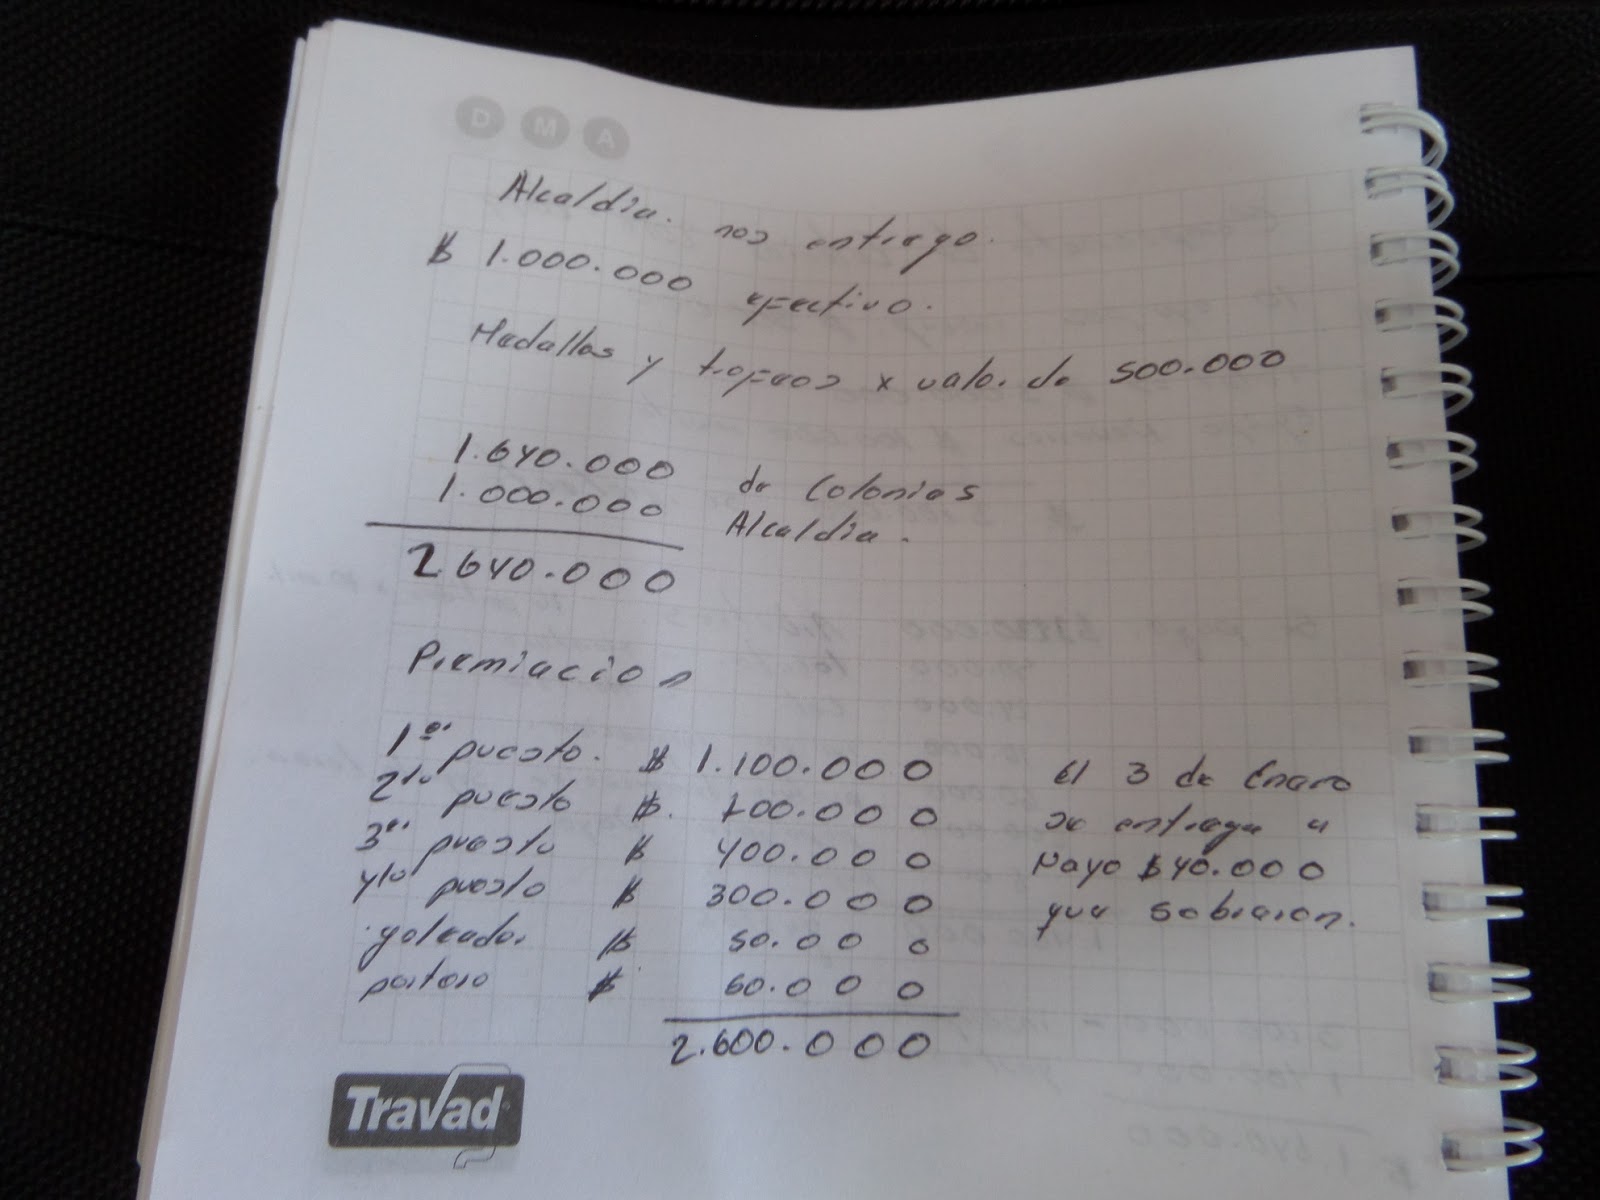 D M A
Alcaldia. nos entrego.
$ 1.000.000 efectivo.
Medallas y trofeos x valor de 500.000
1.640.000 de Colonias
1.000.000 Alcaldia.
2.640.000
Premiacion
1er puesto. $ 1.100.000
2do puesto $. 700.000
3er puesto $ 400.000
4to puesto $ 300.000
goleador $ 50.000
portero $ 50.000
2.600.000
El 3 de Enero
se entrega a
Mayo $40.000
que sobraron.
Travad